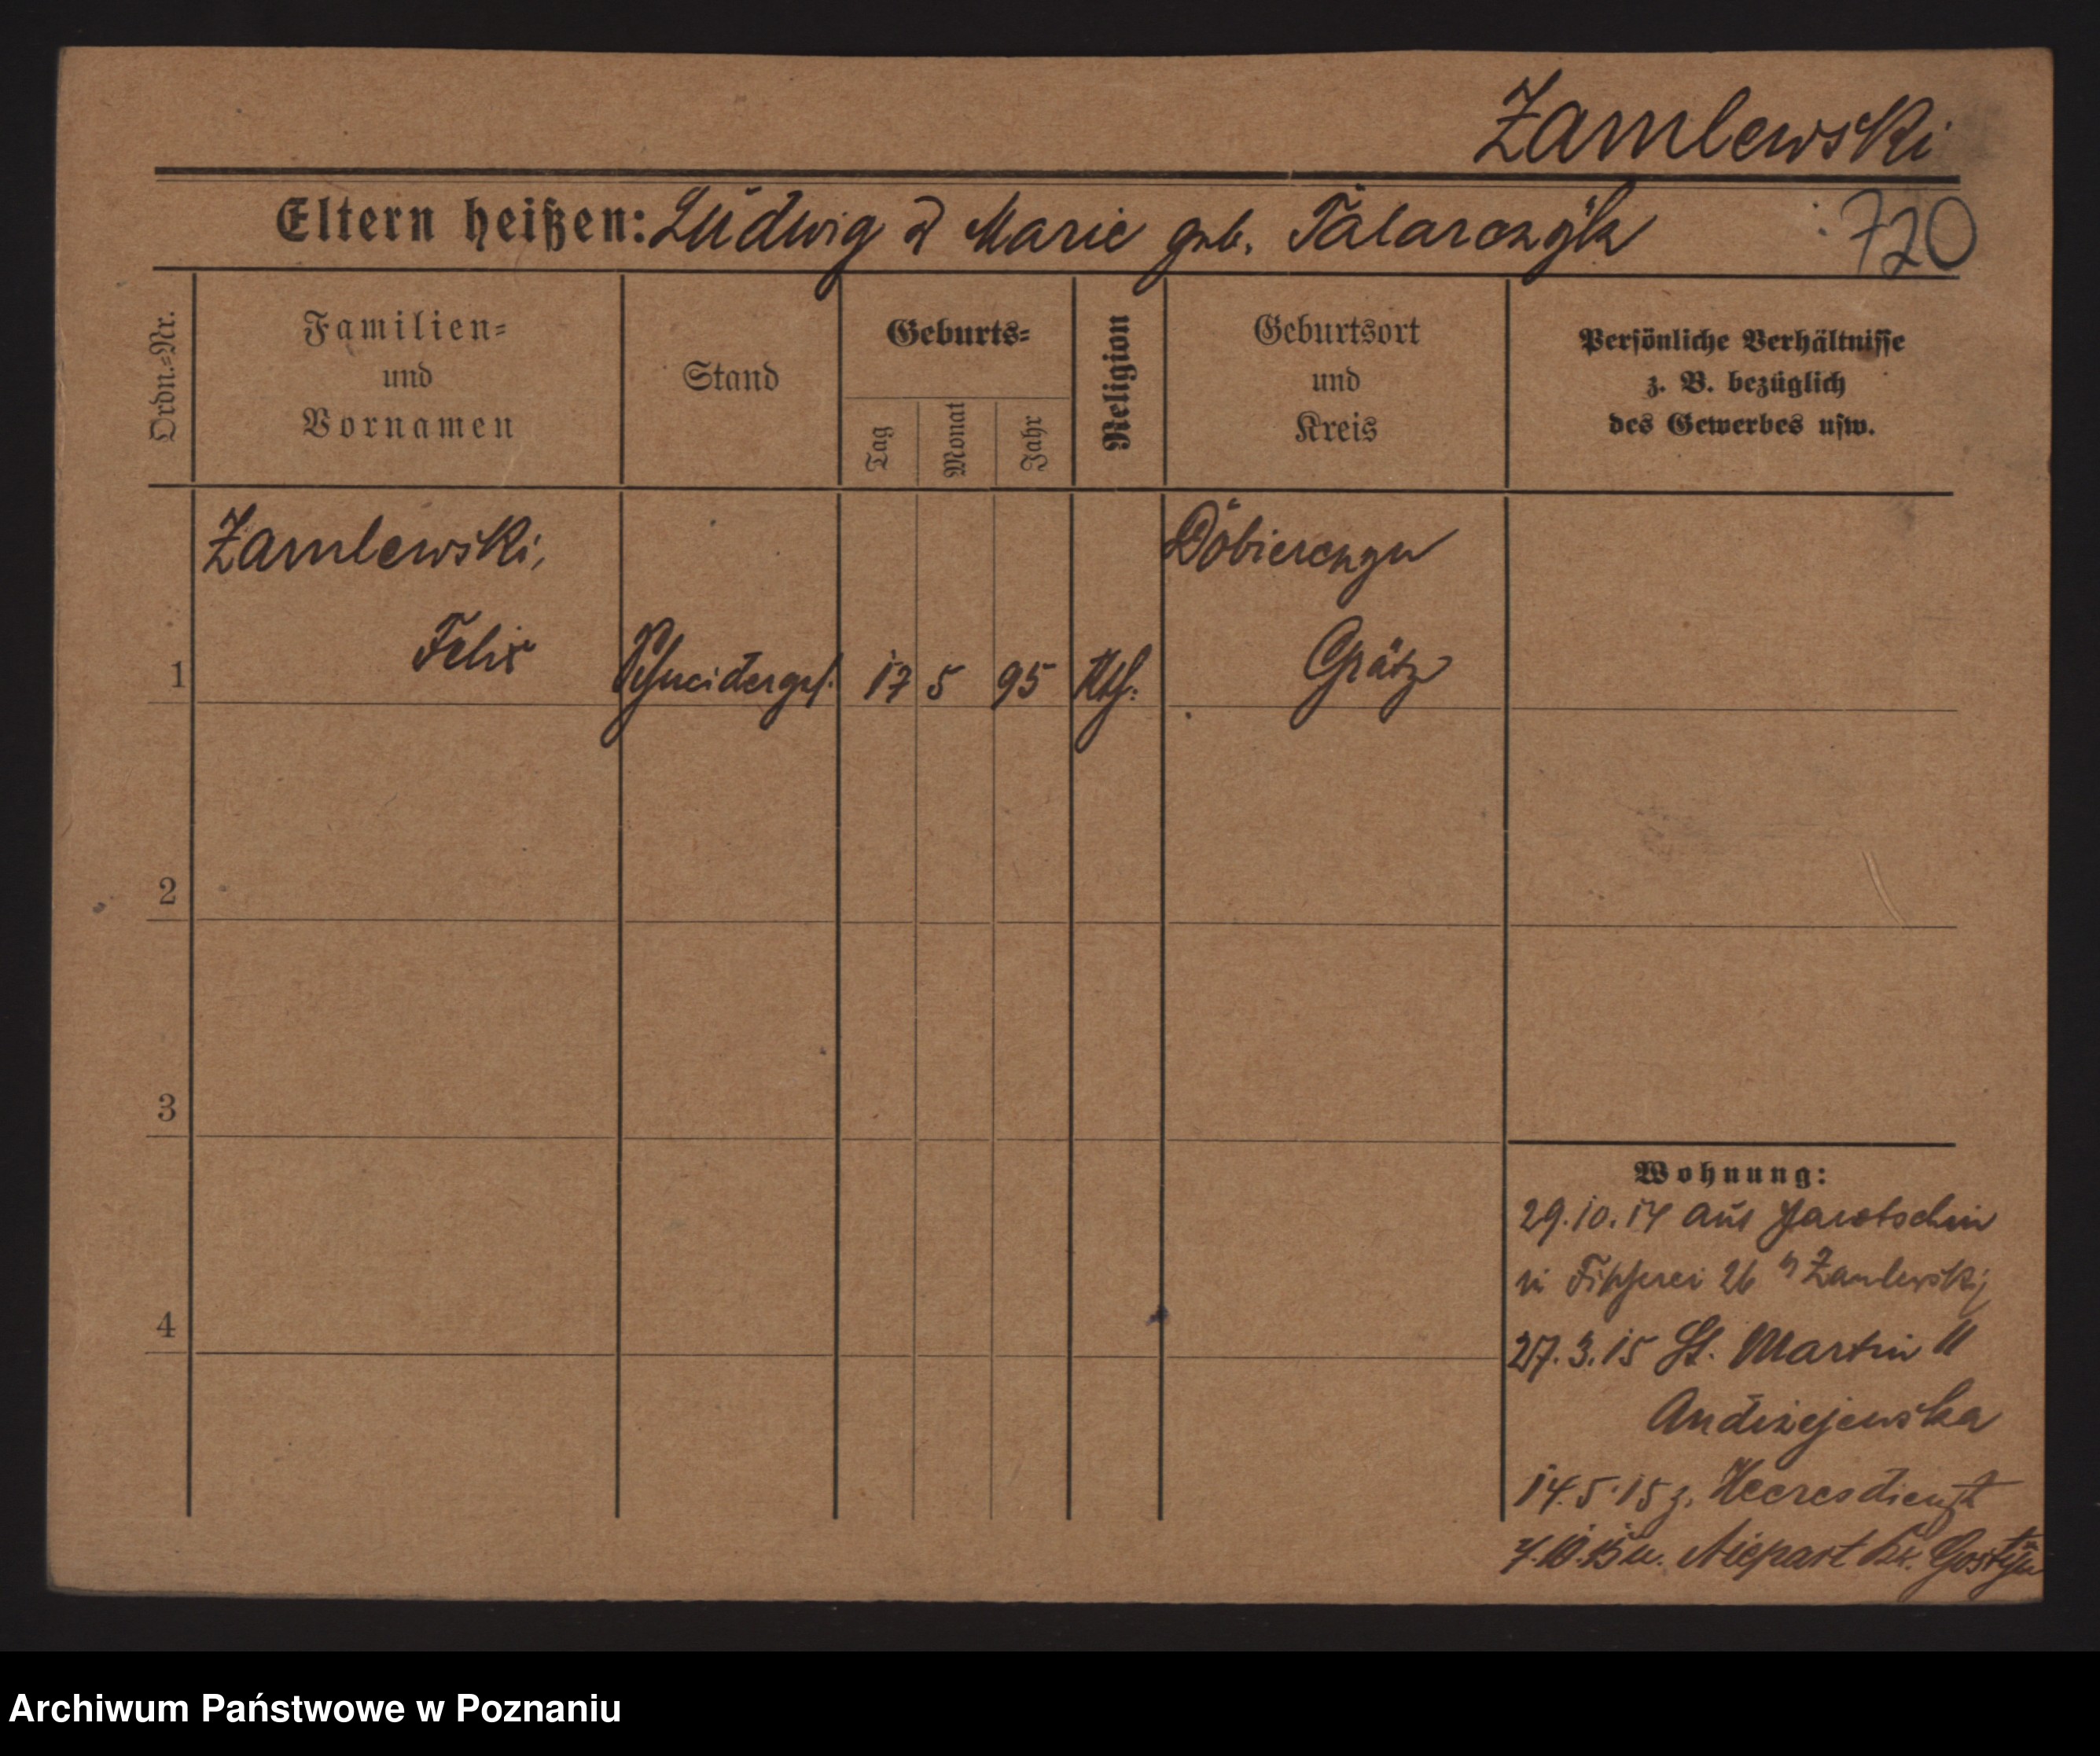 Zamlewski
Eltern heißen: Ludwig & Marie geb. Talarczyk
720
Ordn.-Nr.
Familien-
und
Vornamen
Stand
Geburts-
Tag
Monat
Jahr
Religion
Geburtsort
und
Kreis
Persönliche Verhältnisse
z. B. bezüglich
des Gewerbes usw.
Zamlewski,
Felix
1
Schneiderges.
17 5 95
Kth.
Grätz
2
3
4
Wohnung:
29.10.14 aus Jarotschin
in Fischerei 26 Zamlewski
27.3.15 St. Martin 11
Andrzejewska
14.5.15 z. Heeresdienst
Niepart Kr. Gostyn
Archiwum Państwowe w Poznaniu